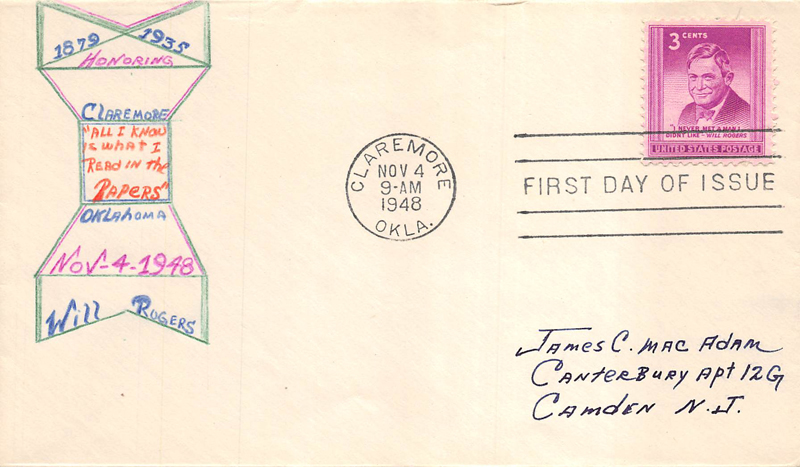 1879 1935
HONORING
CLAREMORE
"ALL I KNOW
is what I
READ IN the
PAPERS"
OKLAHOMA
NOV-4-1948
Will ROGERS
3 CENTS
"I NEVER MET A MAN I
DIDN'T LIKE - WILL ROGERS
UNITED STATES POSTAGE
CLAREMORE
NOV 4
9-AM
1948
OKLA.
FIRST DAY OF ISSUE
JAMES C. MAC ADAM
CANTERBURY APt 12G
CAMDEN N.J.